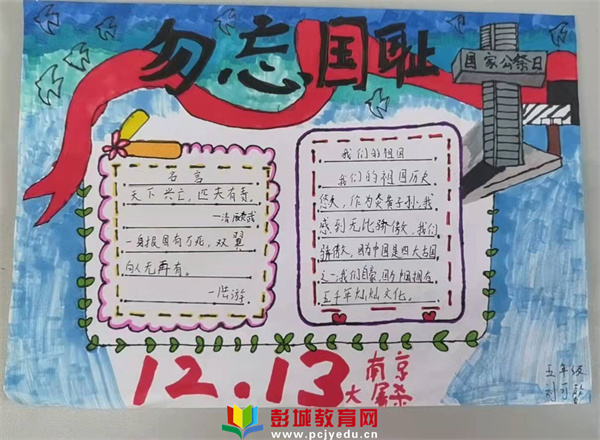 勿忘国耻
国家公祭日
名言
天下兴亡，匹夫有责，
一身报国有万死，双翼
向人无再有。
—陆游
我们的祖国
我们的祖国历史
悠久，作为炎黄子孙，我
感到无比骄傲，我们
骄傲，因为中国是四大古国
之一，我们自豪，因为中国拥有
五千年灿烂文化。
12.13
南京
大屠杀
五年级
彭城教育网
www.pcjyedu.cn